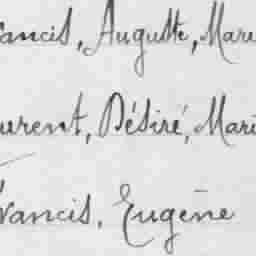 rancis, Auguste, Mari
urent, Désiré, Mari
Francis, Eugène